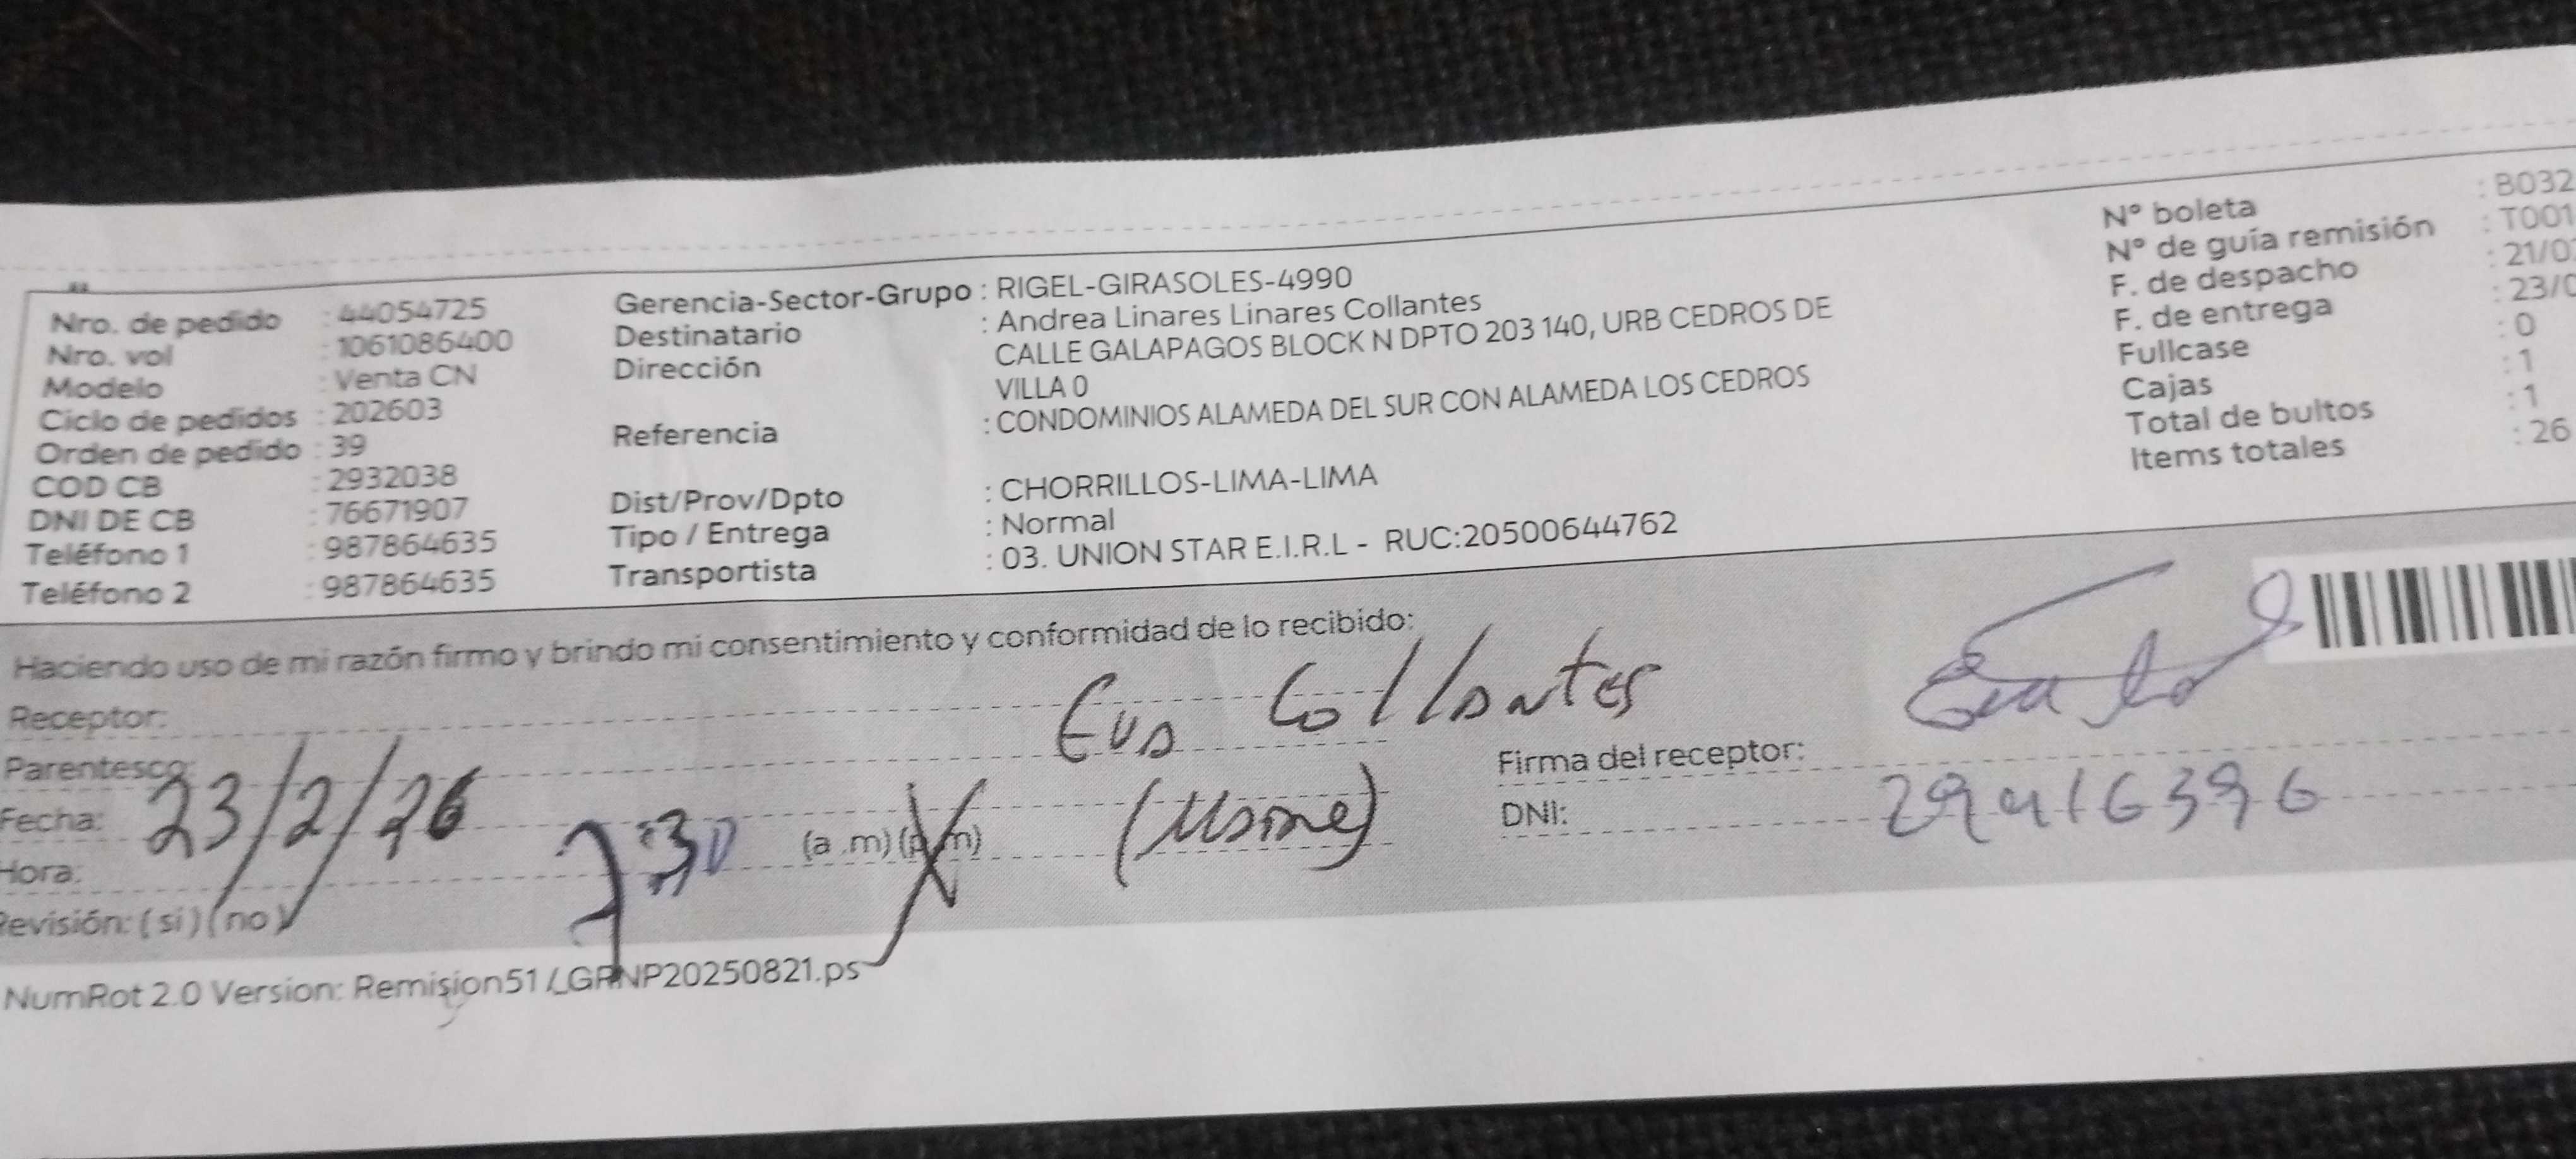 Nro. de pedido : 44054725
Nro. vol : 1061086400
Modelo : Venta CN
Ciclo de pedidos : 202603
Orden de pedido : 39
COD CB : 2932038
DNI DE CB : 76671907
Teléfono 1 : 987864635
Teléfono 2 : 987864635
Gerencia-Sector-Grupo : RIGEL-GIRASOLES-4990
Destinatario : Andrea Linares Linares Collantes
Dirección CALLE GALAPAGOS BLOCK N DPTO 203 140, URB CEDROS DE
VILLA 0
Referencia : CONDOMINIOS ALAMEDA DEL SUR CON ALAMEDA LOS CEDROS
Dist/Prov/Dpto : CHORRILLOS-LIMA-LIMA
Tipo / Entrega : Normal
Transportista : 03. UNION STAR E.I.R.L - RUC:20500644762
N° boleta : B032
N° de guía remisión : T001
F. de despacho : 21/0
F. de entrega : 23/0
Fullcase : 0
Cajas : 1
Total de bultos : 1
Items totales : 26
Haciendo uso de mi razón firmo y brindo mi consentimiento y conformidad de lo recibido:
Receptor: Eva Collantes
Parentesco: (Mamá)
Fecha: 23/2/26
Hora: 7:30 (a .m) (p.m)
Revisión: ( si ) ( no )
Firma del receptor:
DNI: 29416396
NumRot 2.0 Version: Remision51 /_GRNP20250821.ps